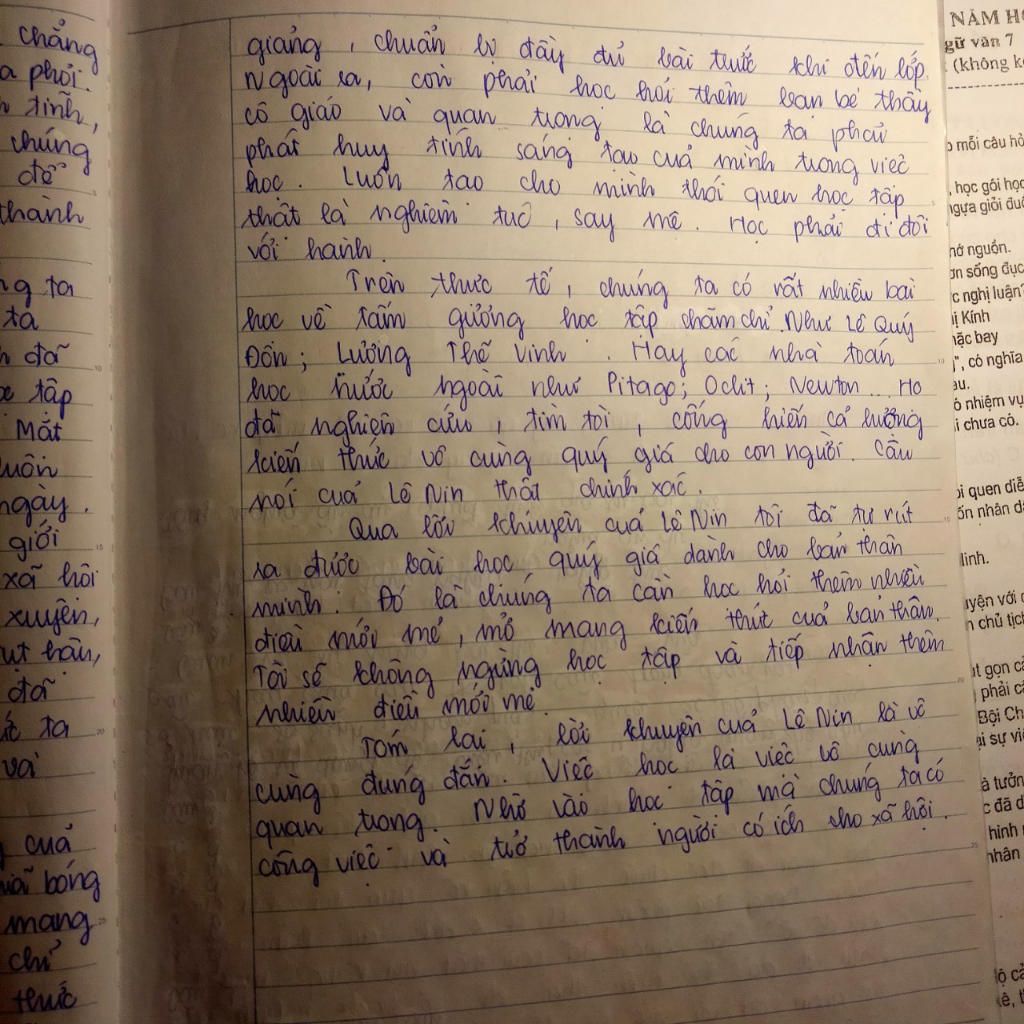 chẳng
a phởi.
tĩnh,
chúng
để
thành
ng ta
ta
đã
tập
Mắt
luôn
ngày.
giới
xã hội
xuyên,
đã
ta
và
của
bóng
mang
chỉ
thức
giảng, chuẩn bị đầy đủ bài trước khi đến lớp.
Ngoài ra, còn phải học hỏi thêm bạn bè thầy
cô giáo và quan trọng là chúng ta phải
phát huy tính sáng tạo của mình trong việc
học. Luôn tạo cho mình thói quen học tập
thật là nghiêm túc, say mê. Học phải đi đôi
với hành.
Trên thực tế, chúng ta có rất nhiều bài
học về tấm gương học tập chăm chỉ. Như Lê Quý
Đôn; Lương Thế Vinh. Hay các nhà toán
học nước ngoài như Pitago; Ơclit; Newton... Họ
đã nghiên cứu, tìm tòi, cống hiến cả lượng
kiến thức vô cùng quý giá cho con người. Câu
nói của Lê Nin thật chính xác.
Qua lời khuyên của Lê Nin tôi đã tự rút
ra được bài học quý giá dành cho bản thân
mình. Đó là chúng ta cần học hỏi thêm nhiều
điều mới mẻ, mở mang kiến thức của bản thân.
Tôi sẽ không ngừng học tập và tiếp nhận thêm
nhiều điều mới mẻ.
Tóm lại, lời khuyên của Lê Nin là vô
cùng đúng đắn. Việc học là việc vô cùng
quan trọng. Nhờ vào học tập mà chúng ta có
công việc và trở thành người có ích cho xã hội.
NĂM HỌ
gữ văn 7
(không k
mỗi câu hỏ
, học gói học
ngựa giỏi đu
hớ nguồn.
ơn sống đục
c nghị luận?
hị Kính
mặc bay
", có nghĩa
au.
ó nhiệm vụ
i chưa có.
ói quen diễ
ốn nhân d
linh.
uyện với
n chủ tịc
t gọn c
phải c
Bội Ch
ại sự vi
à tưởn
c đã d
hình
nhân
lộ c